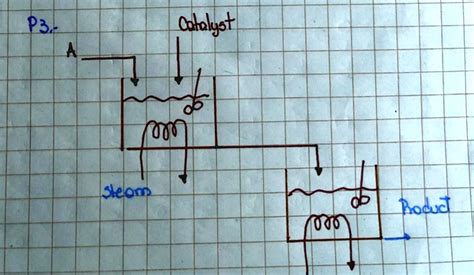 P3.-
Catalyst
A
Steam
Product